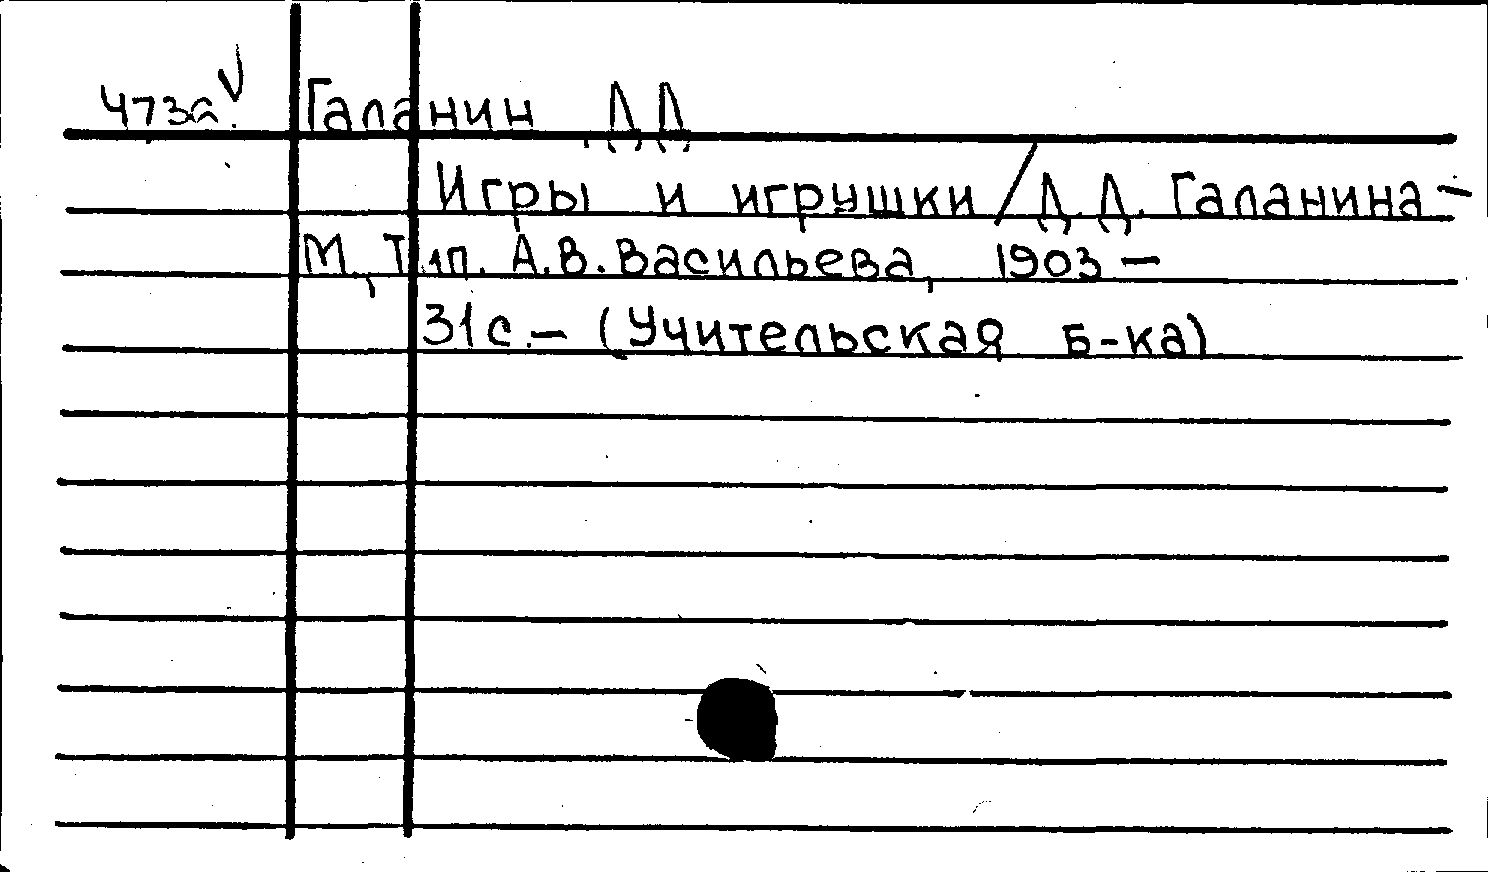 473а. Галанин Д Д
Игры и игрушки / Д. Д. Галанина -
М., Тип. А.В.Васильева, 1903 -
31с. - (Учительская б-ка)